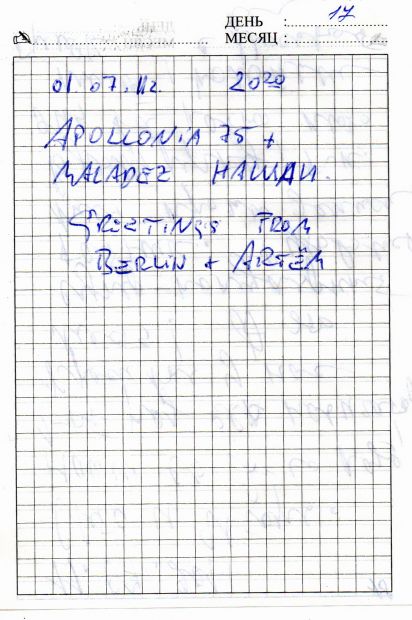 ДЕНЬ : 17
МЕСЯЦ :
01.07. 2020
APOLLONIA 75 +
MALADEZ НАШАИ.
GREETINGS FROM
BERLIN + ARTËM